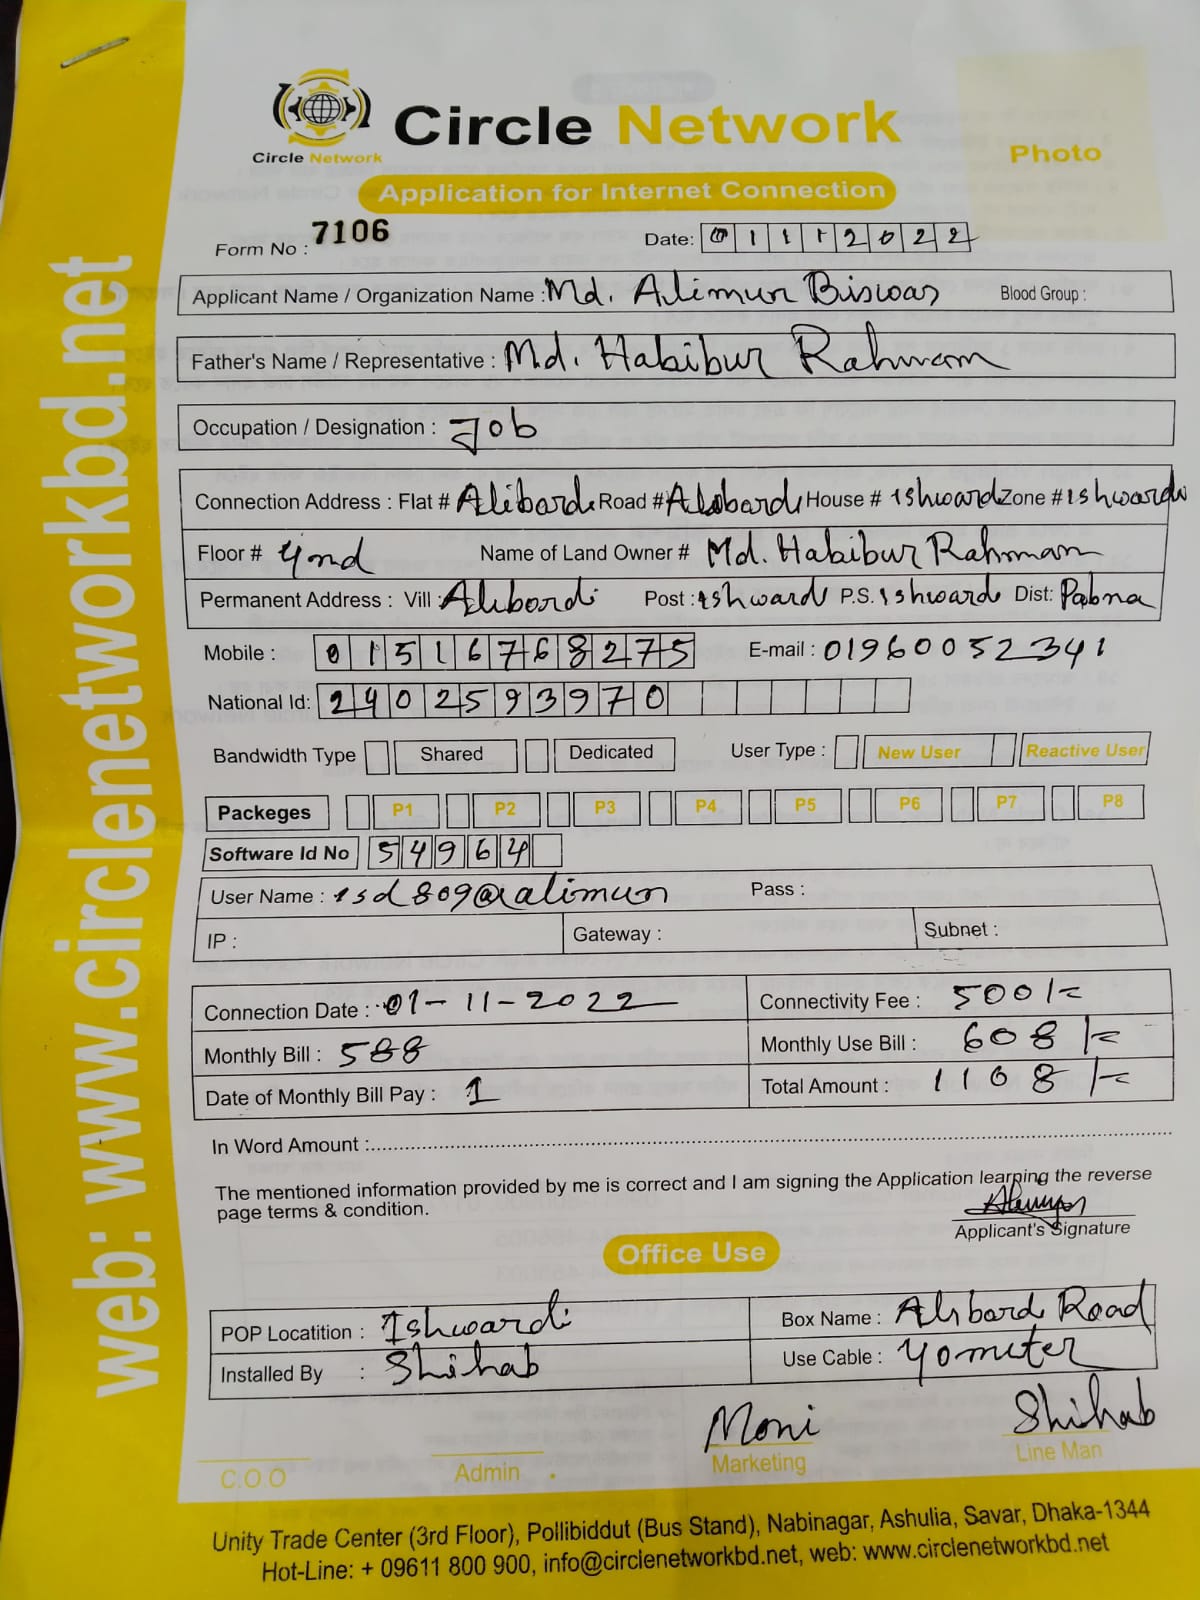 Circle Network
Circle Network
Photo
Application for Internet Connection
Form No : 7106
Date: 01112022
Applicant Name / Organization Name : Md. Alimun Biswas Blood Group :
Father's Name / Representative : Md. Habibur Rahman
Occupation / Designation : Job
Connection Address : Flat # Alibardi Road # Alobardi House # Ishwardi Zone # Ishwardi
Floor # 4nd Name of Land Owner # Md. Habibur Rahman
Permanent Address : Vill : Alibordi Post : Ishwardi P.S. Ishwardi Dist: Pabna
Mobile : 01516768275 E-mail : 01960052341
National Id: 2402593970
Bandwidth Type Shared Dedicated User Type : New User Reactive User
Packeges P1 P2 P3 P4 P5 P6 P7 P8
Software Id No 54964
User Name : isd809@alimun Pass :
IP : Gateway : Subnet :
Connection Date : 01-11-2022 Connectivity Fee : 500/=
Monthly Bill : 588 Monthly Use Bill : 608/=
Date of Monthly Bill Pay : 1 Total Amount : 1108/=
In Word Amount :
The mentioned information provided by me is correct and I am signing the Application learning the reverse
page terms & condition.
Applicant's Signature
Office Use
POP Locatition : Ishwardi Box Name : Alibardi Road
Installed By : Shihab Use Cable : 40 miter
Moni Shihab
C.O.O Admin Marketing Line Man
Unity Trade Center (3rd Floor), Pollibiddut (Bus Stand), Nabinagar, Ashulia, Savar, Dhaka-1344
Hot-Line: + 09611 800 900, info@circlenetworkbd.net, web: www.circlenetworkbd.net
web: www.circlenetworkbd.net